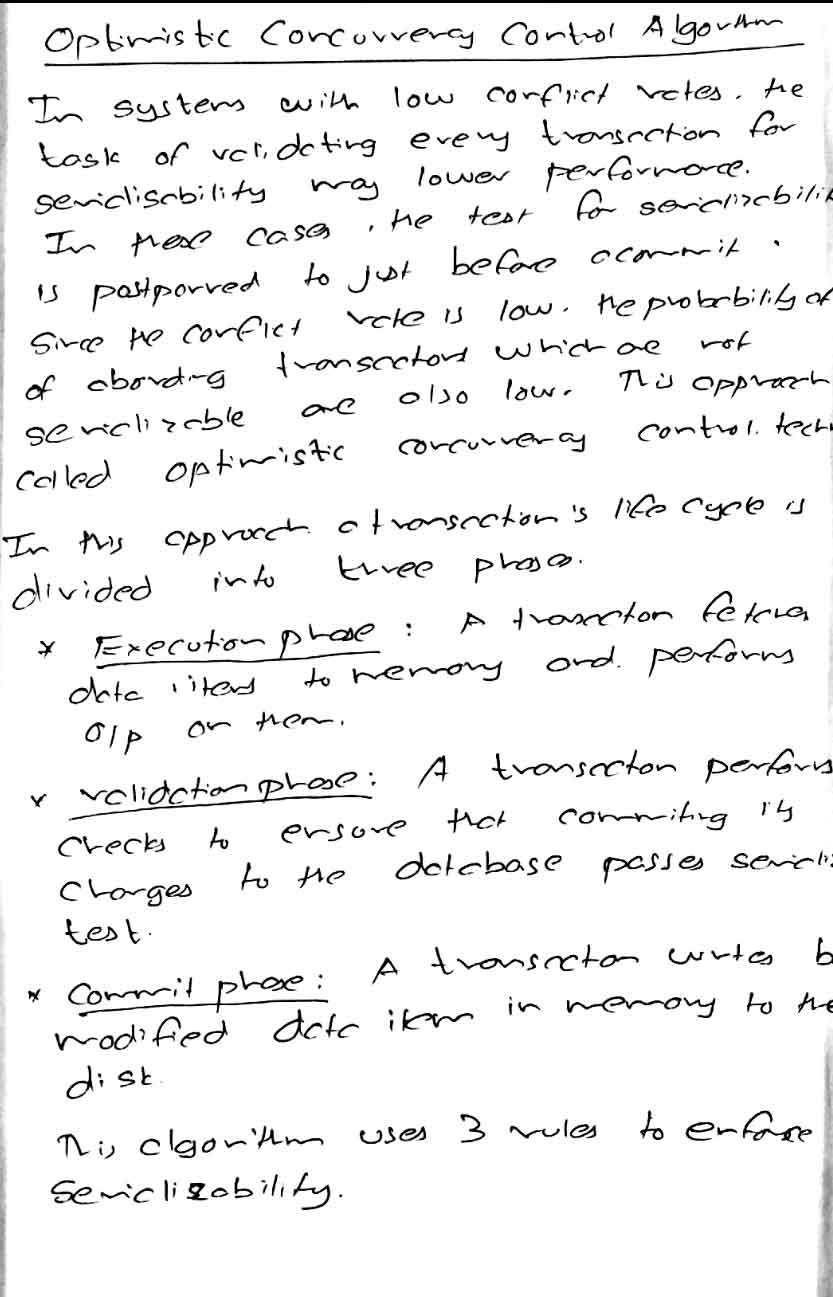 Optimistic Concurrency Control Algorithm
In systems with low conflict rates, the
task of validating every transaction for
serialisability may lower performance.
In these cases, the test for serializabilit
is postponed to just before a commit.
Since the conflict rate is low, the probability of
of aborting transactions which are not
serializable are also low. This approach
called optimistic concurrency control. tech
In this approach a transaction's life cycle is
divided into three phases.
* Execution phase : A transaction fetches
data items to memory and performs
o/p on them.
* validation phase: A transaction performs
checks to ensure that commiting its
changes to the database passes seriali
test.
* Commit phase: A transaction writes b
modified data item in memory to the
disk.
This algorithm uses 3 rules to enforce
serializability.